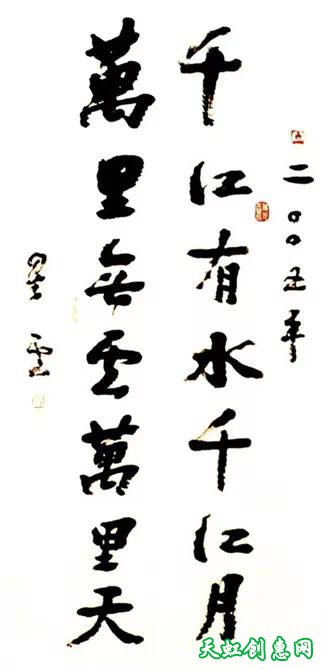 二〇〇五年
千江有水千江月
萬里無云萬里天
星雲
天虹创惠网